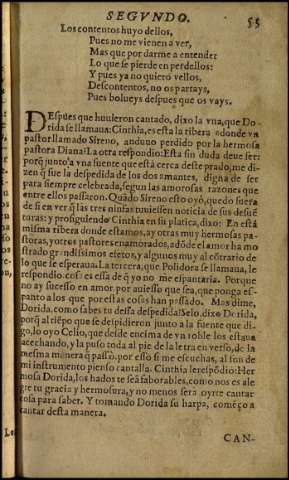 SEGVNDO. 55
Los contentos huyo dellos,
Pues no me vienen a ver,
Mas que por darme a entender
Lo que se pierde en perdellos:
Y pues ya no quiero vellos,
Descontentos, no os partays,
Pues bolueys despues que os vays.
DEspues que huuieron cantado, dixo la vna, que Do-
rida se llamaua: Cinthia, es esta la ribera adonde vn
pastor llamado Sireno, anduuo perdido por la hermosa
pastora Diana? La otra respondio: Esta sin duda deue ser:
porq̃ junto a vna fuente que està cerca deste prado, me di-
zen q̃ fue la despedida de los dos amantes, digna de ser
para siempre celebrada, segun las amorosas razones que
entre ellos passaron. Quãdo Sireno esto oyò, quedo fuera
de si en ver q̃ las tres ninfas tuuiessen noticia de sus desuẽ
turas: y prosiguiendo Cinthia en su platica, dixo: En esta
misma ribera donde estamos, ay otras muy hermosas pa-
storas, y otros pastores enamorados, adõde el amor ha mo
strado grandissimos efetos, y algunos muy al cõtrario de
lo que se esperaua. La tercera, que Polidora se llamaua, le
respondio: cosa es essa de q̃ yo no me espantaria. Porque
no ay sucesso en amor, por auiesso que sea, que ponga es-
panto a los que por estas cosas han passado. Mas dime,
Dorida, como sabes tu dessa despedida? Selo, dixo Dorida,
porq̃ al tiẽpo que se despidieron junto a la fuente que di-
go, lo oyo Celio, que desde encima de vn roble los estaua
acechando, y la puso toda al pie de la letra en verso, de la
mesma manera q̃ passò. por esso si me escuchas, al son de
mi instrumento pienso cantalla. Cinthia le respõdio: Her
mosa Dorida, los hados te seã faborables, como nos es ale
gre tu gracia y hermosura, y no menos serà oyrte cantar
cosa para saber. Y tomando Dorida su harpa, começo a
cantar desta manera.
CAN-